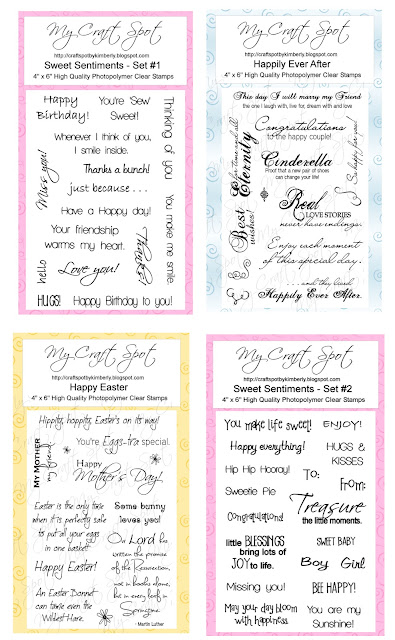 My Craft Spot
http://craftspotbykimberly.blogspot.com
Sweet Sentiments - Set #1
4" x 6" High Quality Photopolymer Clear Stamps
Happy
Birthday!
You're Sew
Sweet!
Thinking of you
Whenever I think of you,
I smile inside.
Miss you!
Thanks a bunch!
just because . . .
Have a Happy day!
You make me smile
Your friendship
warms my heart.
Thanks
hello
Love you!
HUGS!
Happy Birthday to you!
My Craft Spot
http://craftspotbykimberly.blogspot.com
Happily Ever After
4" x 6" High Quality Photopolymer Clear Stamps
This day I will marry my Friend
the one I laugh with, live for, dream with and love
for time and all
Eternity
Congratulations
to the happy couple!
So happy for you!
Cinderella
Proof that a new pair of shoes
can change your life!
Best
wishes!
Real
LOVE STORIES
never have endings.
Enjoy each moment
of this special day.
. . . and they lived
Happily Ever After.
My Craft Spot
http://craftspotbykimberly.blogspot.com
Happy Easter
4" x 6" High Quality Photopolymer Clear Stamps
Hippity, hoppity, Easter's on its way!
MY MOTHER
my friend
You're Eggs-tra special.
Happy
Mother's Day!
Easter is the only time
when it's perfectly safe
to put all your eggs
in one basket.
Some bunny
loves you!
Our Lord has
written the promise
of the Resurrection,
not in books alone,
but in every leaf in
Springtime.
- Martin Luther
Happy Easter!
An Easter Bonnet
can tame even the
Wildest Hare.
My Craft Spot
http://craftspotbykimberly.blogspot.com
Sweet Sentiments - Set #2
4" x 6" High Quality Photopolymer Clear Stamps
You make life sweet!
ENJOY!
Happy everything!
HUGS &
KISSES
Hip Hip Hooray!
To:
From:
Sweetie Pie
Treasure
the little moments.
Congratulations!
little BLESSINGS
bring lots of
JOY to life.
SWEET BABY
Boy Girl
Missing you!
BEE HAPPY!
May your day bloom
with happiness.
You are my
Sunshine!